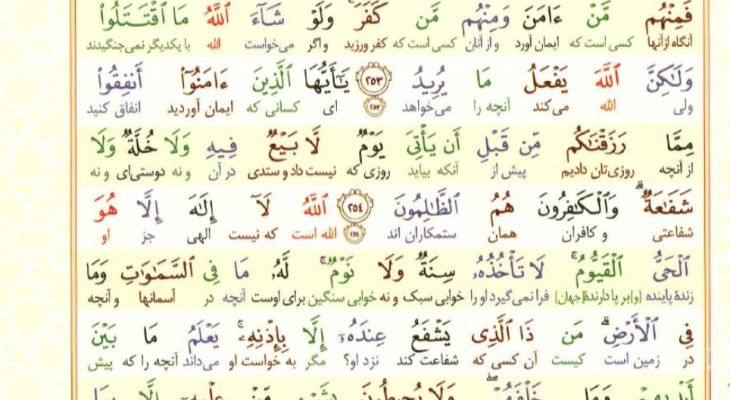 فَمِنْهُم مَّنْ ءَامَنَ وَمِنْهُم مَّن كَفَرَ ۚ وَلَوْ شَآءَ ٱللَّهُ مَا ٱقْتَتَلُوا۟
آنگاه ازآنها کسی است که ایمان آورد و از آنان کسی است که کفر ورزید و اگر می‌خواست الله با یکدیگر نمی‌جنگیدند
وَلَـٰكِنَّ ٱللَّهَ يَفْعَلُ مَا يُرِيدُ ﴿٢٥٣﴾ يَـٰٓأَيُّهَا ٱلَّذِينَ ءَامَنُوٓا۟ أَنفِقُوا۟
ولی الله می‌کند آنچه را می‌خواهد ۲۵۳ ای کسانی که ایمان آوردید انفاق کنید
مِمَّا رَزَقْنَـٰكُم مِّن قَبْلِ أَن يَأْتِىَ يَوْمٌ لَّا بَيْعٌ فِيهِ وَلَا خُلَّةٌ وَلَا
از آنچه روزی‌تان دادیم پیش از آنکه بیاید روزی که نیست داد و ستدی در آن و نه دوستی‌ای و نه
شَفَـٰعَةٌ ۗ وَٱلْكَـٰفِرُونَ هُمُ ٱلظَّـٰلِمُونَ ﴿٢٥٤﴾ ٱللَّهُ لَآ إِلَـٰهَ إِلَّا هُوَ
شفاعتی و کافران همان ستمکاران اند ۲۵۴ الله است که نیست الهی جز او
ٱلْحَىُّ ٱلْقَيُّومُ ۚ لَا تَأْخُذُهُۥ سِنَةٌ وَلَا نَوْمٌ ۚ لَّهُۥ مَا فِى ٱلسَّمَـٰوَٰتِ وَمَا
زندهٔ پاینده [و] برپا دارندهٔ [جهان] فرا نمی‌گیرد او را خوابی سبک و نه خوابی سنگین برای اوست آنچه در آسمانها و آنچه
فِى ٱلْأَرْضِ ۗ مَن ذَا ٱلَّذِى يَشْفَعُ عِندَهُۥٓ إِلَّا بِإِذْنِهِۦ ۚ يَعْلَمُ مَا بَيْنَ
در زمین است کیست آن کسی که شفاعت کند نزد او؟ مگر به خواست او می‌داند آنچه را که پیش